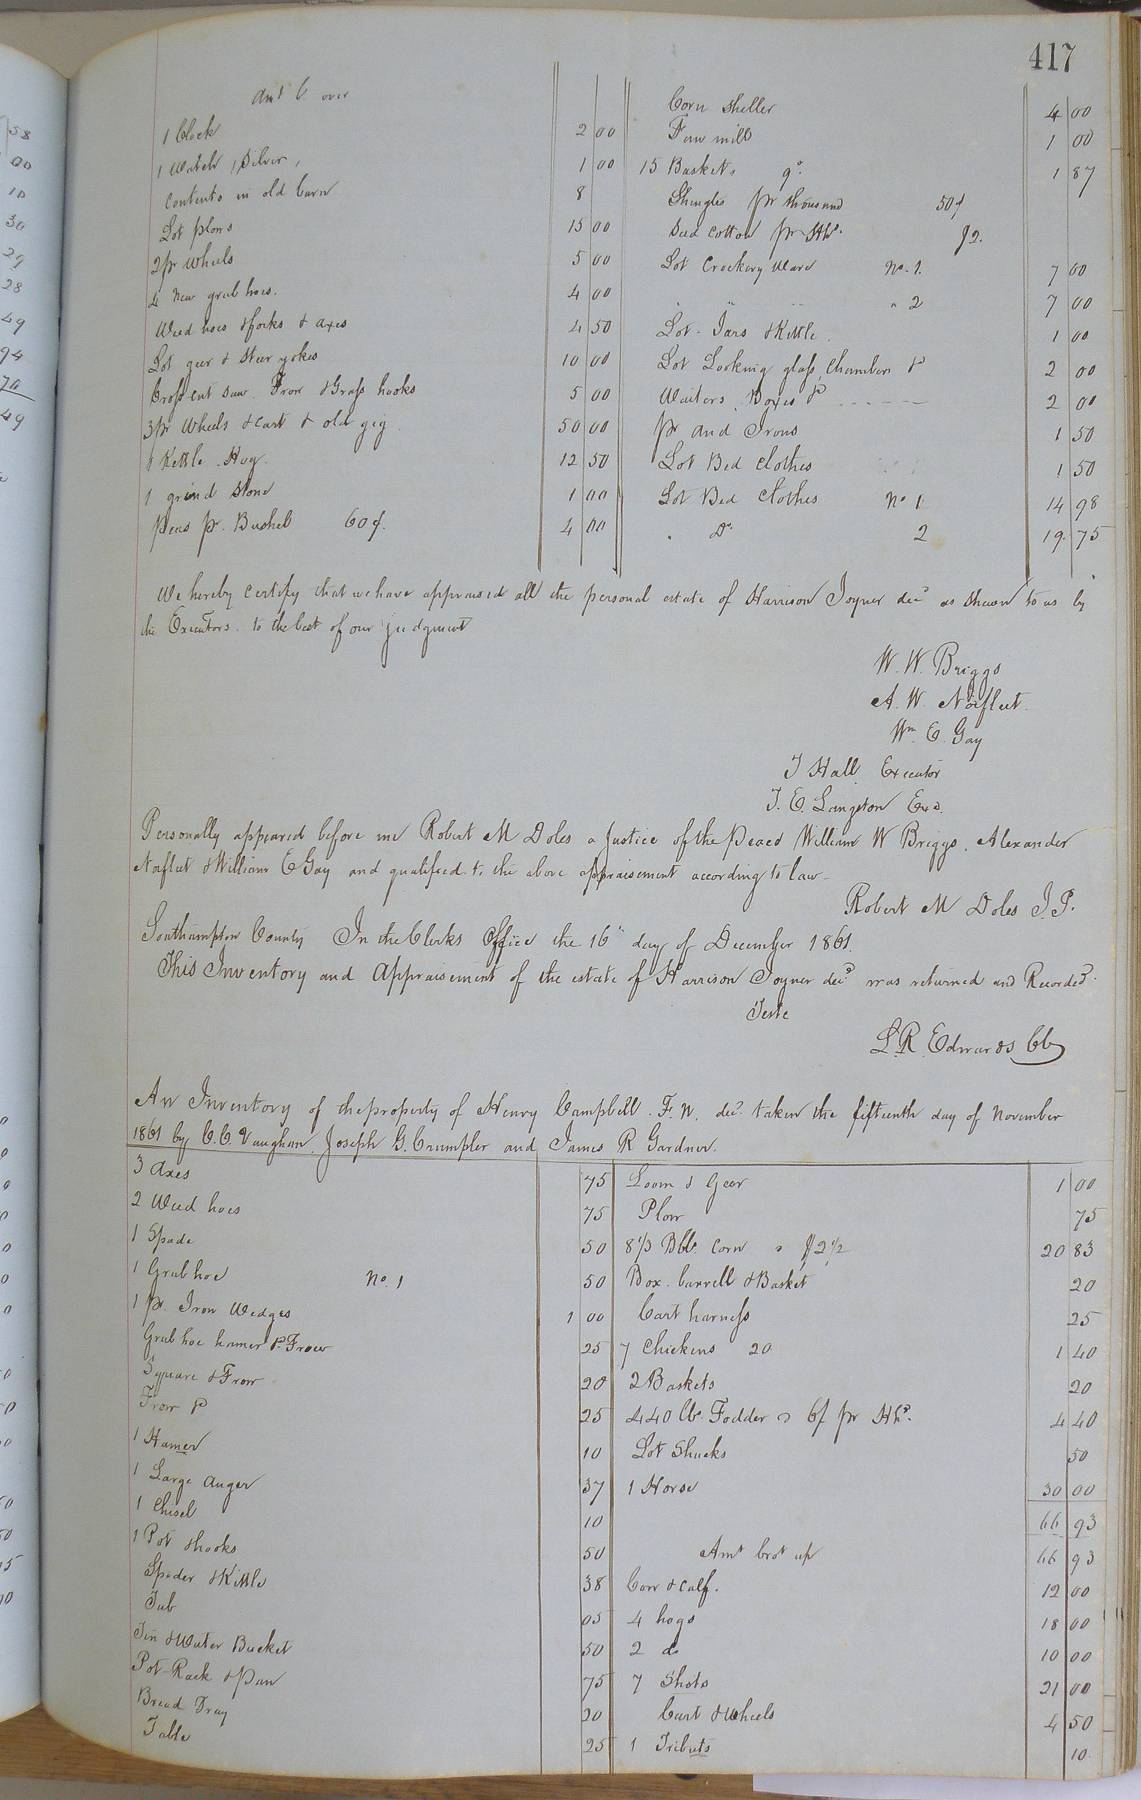 417
Amt C over
1 Clock 2 00
1 Watch, Silver, 1 00
Contents in old barn 8
Lot plows 15 00
2 pr Wheels 5 00
4 New grub hoes. 4 00
Weed hoes & forks & axes 4 50
Lot geer & Steer yokes 10 00
Cross cut saw. Frow & Grass hooks 5 00
3 pr Wheels & Cart & old gig 50 00
1 Kettle. Hog. 12 50
1 grind Stone 1 00
Peas pr. Bushel 60¢. 4 00
Corn Sheller 4 00
Fan mill 1 00
15 Baskets 9c. 1 87
Shingles pr thousand 50¢
Seed Cotton pr Hd. $2.
Lot Crockery Ware No. 1. 7 00
" " " " 2 7 00
Lot Jars & Kettle. 1 00
Lot Looking glass, Chamber P 2 00
Waiters, Boxes P 2 00
pr And Irons 1 50
Lot Bed Clothes 1 50
Lot Bed Clothes No 1 14 98
" Do 2 19 75
We hereby certify that we have appraised all the personal estate of Harrison Joyner decd as shewn to us by
the Executors. to the best of our judgment
W. W. Briggs
A. W. Norfleet.
Wm E. Gay
J Hall Executor
J. E. Langston Exo.
Personally appeared before me Robert M Doles a Justice of the Peace William W Briggs. Alexander
Norfleet & William E Gay and qualified to the above appraisement according to law—
Robert M Doles J. P.
Southampton County In the Clerks Office the 16" day of December 1861.
This Inventory and Appraisement of the estate of Harrison Joyner decd was returned and Recorded.
Teste
L R Edwards Clk
An Inventory of the property of Henry Campbell. F. N. decd. taken the fifteenth day of November
1861 by C. C. Vaughan, Joseph G. Crumpler and James R Gardner.
3 Axes 75
2 Weed hoes 75
1 Spade 50
1 Grub hoe No. 1 50
1 pr. Iron Wedges 1 00
Grub hoe hamer P. Frow 25
Square & Frow 20
Frow P 25
1 Hamer 10
1 Large Auger 37
1 Chisel 10
1 Pot & hooks 50
Spider & Kittle 38
Tub 05
Tin & Water Bucket 50
Pot-Rack & pan 75
Bread Tray 20
Table 25
Loom & Geer 1 00
Plow 75
8 1/3 Bbl. Corn @ $2 1/2 20 83
Box. barrell & Basket 20
Cart harness 25
7 Chickens 20 1 40
2 Baskets 20
440 lbs. Fodder @ 6/ pr Hd. 4 40
Lot Shucks 50
1 Horse 30 00
66 93
Amt brot up 66 93
Cow & calf. 12 00
4 hogs 18 00
2 do 10 00
7 Shots 21 00
Cart & Wheels 4 50
1 10